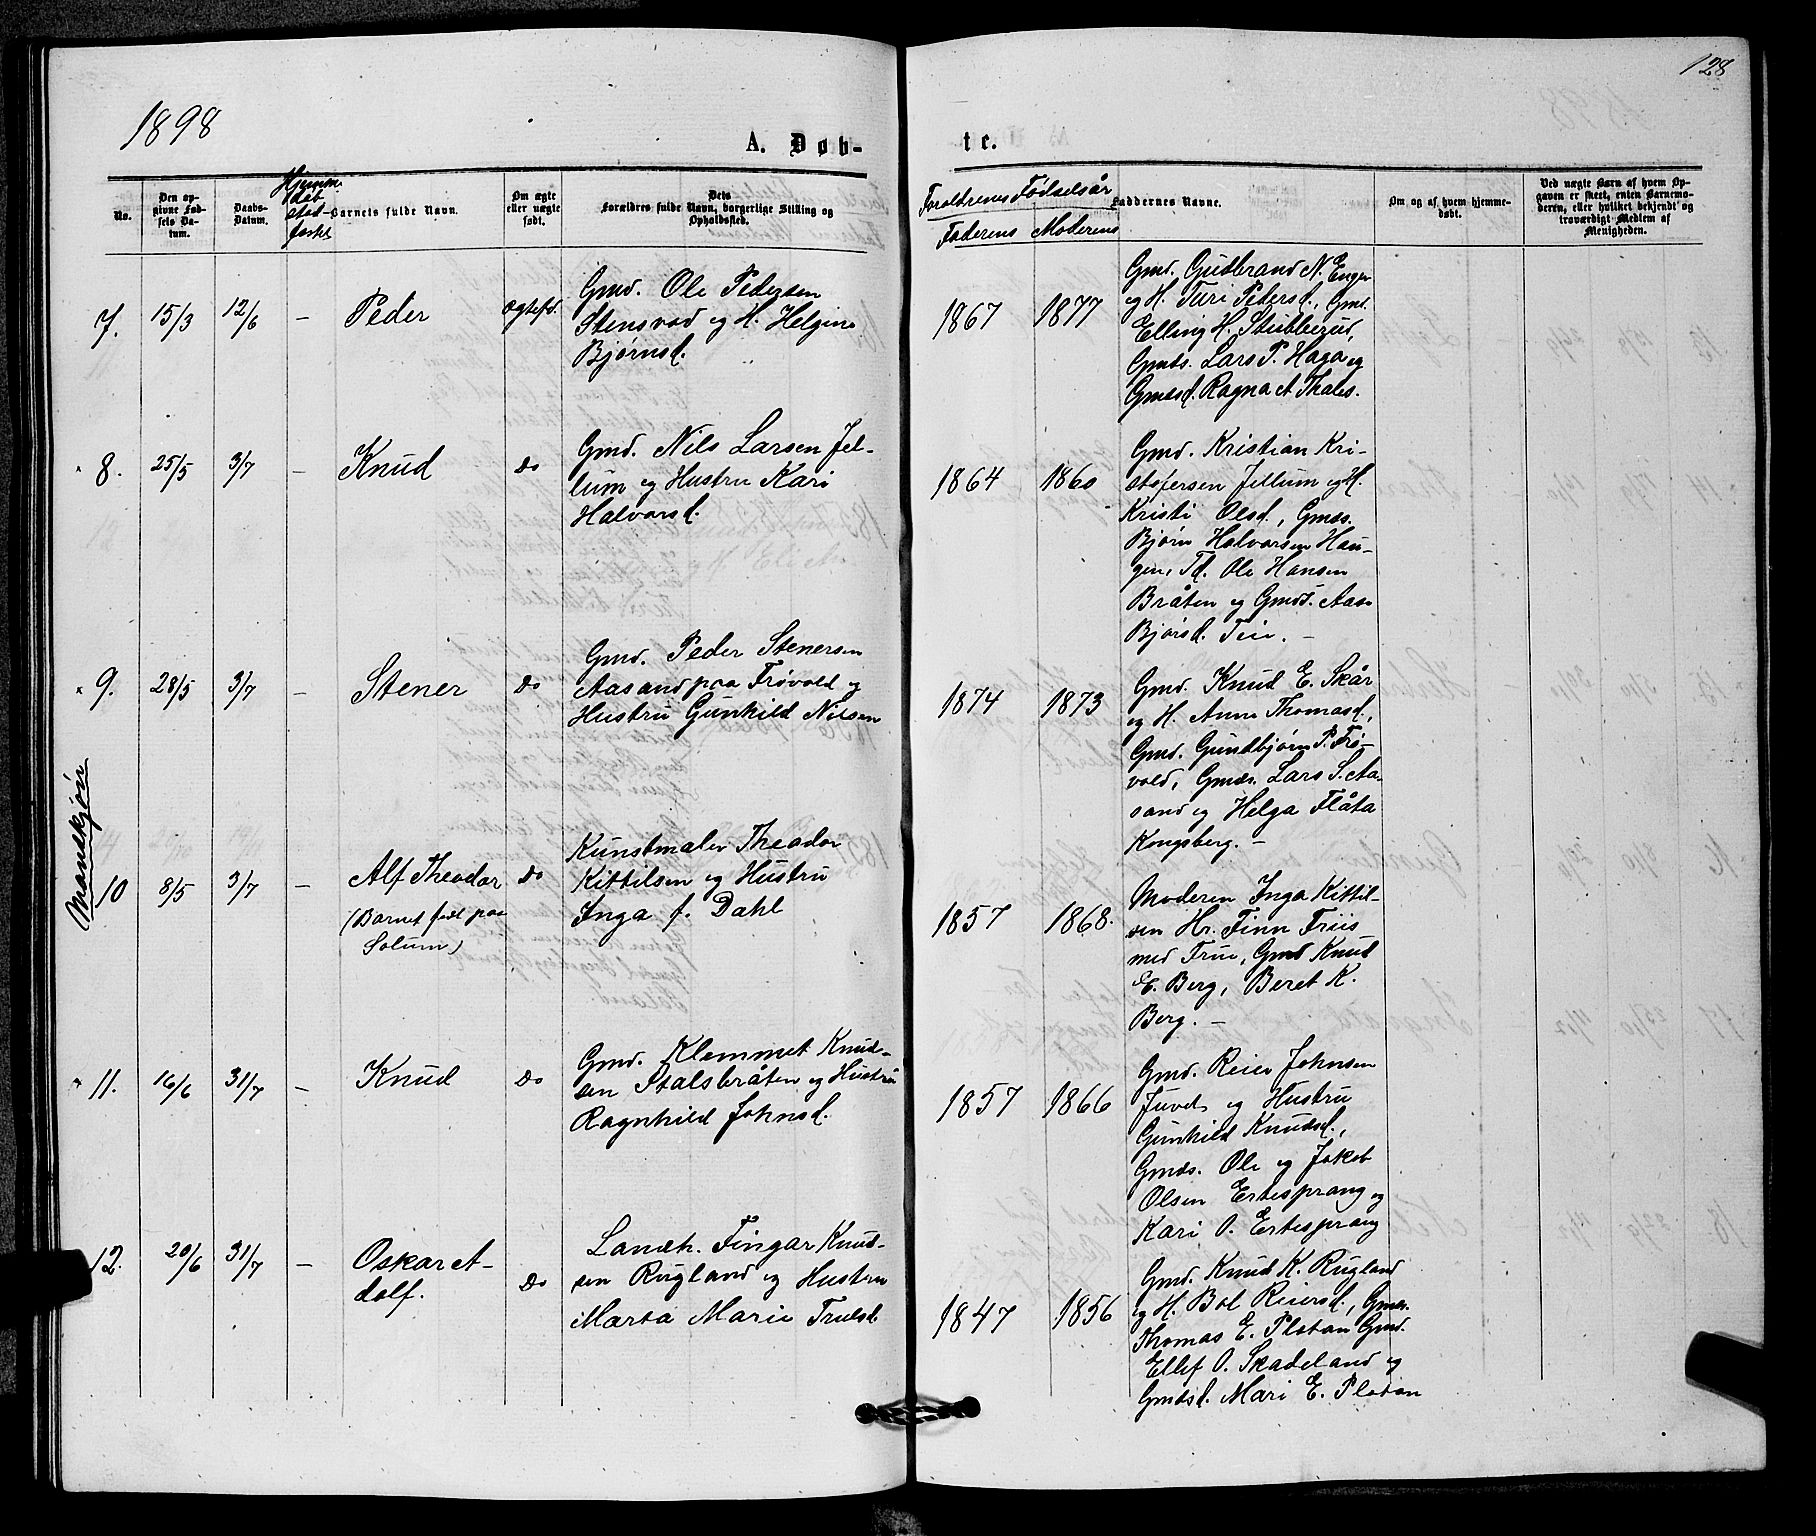 1898
128
A. Døb-
te.
No.
Den op-
givne Fød-
sels Da-
tum.
Daabs-
Datum.
Hjemme-
døbt
Barnets fulde Navn.
Om ægte
eller uægte
født.
Dets
Forældres fulde Navn, borgerlige Stilling og
Opholdssted.
Forældrenes Fødselsår
Faderens Moderens
Faddernes Navne.
Om og af hvem hjemme-
døbt.
Ved uægte Barn af hvem Op-
gaven er skeet, enten Barnemo-
deren, eller hvilket bekjendt og
troværdigt Medlem af
Menigheden.
7. 15/3 12/6 – Peder ægtefd.
Gmd. Ole Pedersen
Stensvad og H. Helgine
Bjørnsd.
1867 1877
Gmd. Gudbrand N. Enger
og H. Turi Petersd., Gmd.
Elling H. Stubberud,
Gmds. Lars P. Haga og
Gmdsd. Ragna A Thales.
8. 25/5 3/7 – Knud Do
Gmd. Nils Larsen Jel-
lum og Hustru Kari
Halvorsd.
1864 1860
Gmd. Kristian Kri-
stofersen Jellum og H.
Kristi Olsd., Gmds.
Bjørn Halvorsen Hau-
gen, Td. Ole Hansen
Bråten og Gmds. Aase
Bjørsd. Teie. –
9. 28/5 3/7 – Stener Do
Gmd. Peder Stenersen
Aasand paa Frøvold og
Hustru Gunhild Nilsen
1874 1873
Gmd. Knud E. Skår
og H. Anne Thomasd.,
Gmd. Gundbjørn P. Frø-
vold, Gmds. Lars S. Aa-
sand og Helga Flåta
Kongsberg. –
Mandkjøn
10 8/5 3/7 – Alf Theodor Do
(Barnet født paa
Solum)
Kunstmaler Theador
Kittilsen og Hustru
Inga f. Dahl
1857 1868.
Moderen Inga Kittil-
sen Hr. Finn Friis
med Frue, Gmd Knud
E. Berg, Beret K.
Berg. –
11. 16/6 31/7 – Knud Do
Gmd. Klemmet Knud-
sen Stalsbråten og Hustru
Ragnhild Johnsd.
1857 1866
Gmd. Reier Johnsen
Juvet og Hustru
Gunhild Knudsd.,
Gmds. Ole og Jakob
Olsen Ertesprang og
Kari O. Ertesprang
12. 20/6 31/7 – Oskar A-
dolf. Do
Landh. Fingar Knud-
sen Rugland og Hustru
Marta Marie Truelsd.
1847 1856
Gmd. Knud K. Rugland
og H. Bol Reiersd., Gmds.
Thomas E. Platan Gmd.
Ellef O. Skadeland og
Gmdsd. Mari E. Platan